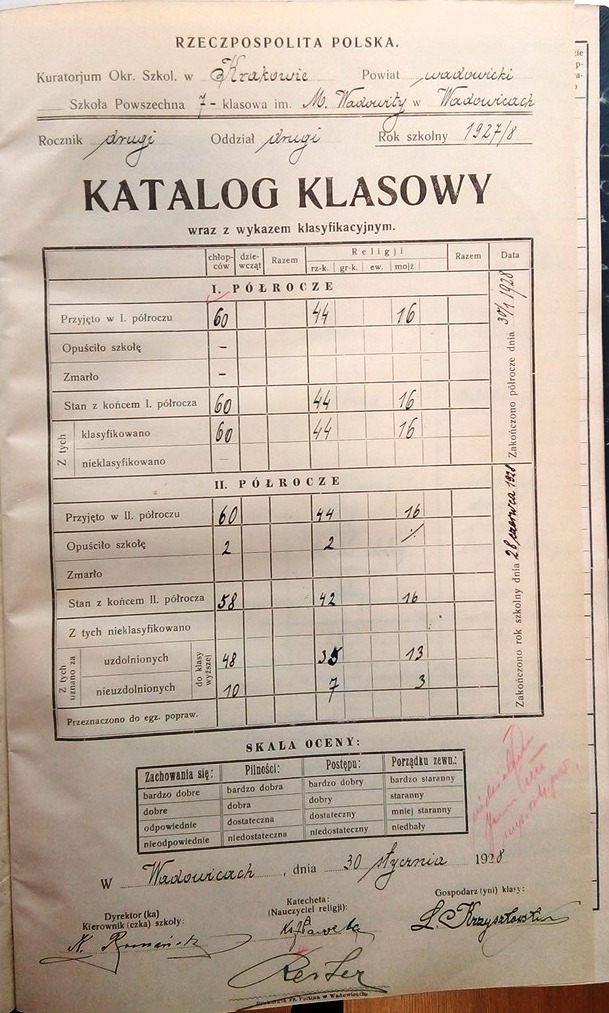 RZECZPOSPOLITA POLSKA.
Kuratorjum Okr. Szkol. w Krakowie Powiat wadowicki
Szkoła Powszechna 7 - klasowa im. M. Wadowity w Wadowicach
Rocznik drugi Oddział drugi Rok szkolny 1927/8
KATALOG KLASOWY
wraz z wykazem klasyfikacyjnym.
chłop-ców dzie-wcząt Razem Religji Razem Data
rz-k. gr-k. ew. mojż
I. PÓŁROCZE
Przyjęto w I. półroczu 60 44 16
Opuściło szkołę -
Zmarło -
Stan z końcem I. półrocza 60 44 16
Z tych klasyfikowano 60 44 16
nieklasyfikowano -
Zakończono półrocze dnia 30/1 1928
II. PÓŁROCZE
Przyjęto w II. półroczu 60 44 16
Opuściło szkołę 2 2
Zmarło
Stan z końcem II. półrocza 58 42 16
Z tych nieklasyfikowano
Z tych uznano za uzdolnionych do klasy wyższej 48 35 13
nieuzdolnionych 10 7 3
Przeznaczono do egz. popraw.
Zakończono rok szkolny dnia 28 czerwca 1928
SKALA OCENY:
Zachowania się: Pilności: Postępu: Porządku zewn.:
bardzo dobre bardzo dobra bardzo dobry bardzo staranny
dobre dobra dobry staranny
odpowiednie dostateczna dostateczny mniej staranny
nieodpowiednie niedostateczna niedostateczny niedbały
W Wadowicach, dnia 30 stycznia 1928
Dyrektor (ka)
Kierownik (czka) szkoły:
Katecheta:
(Nauczyciel religji):
Gospodarz (yni) klasy: